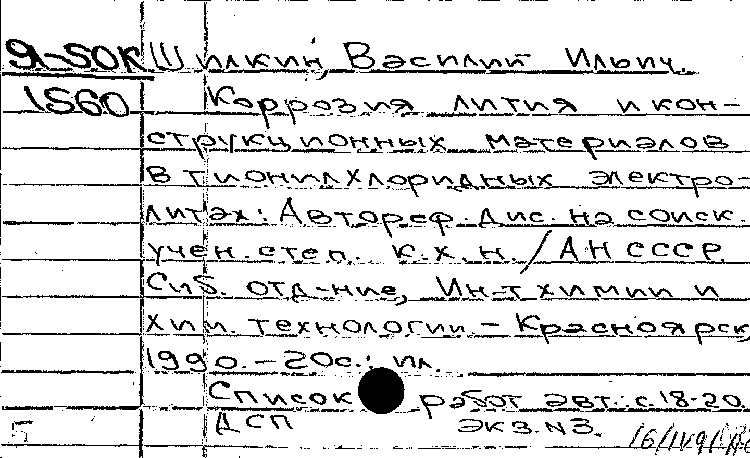 Я-50К Шилкин, Василий Ильич.
1560 Коррозия лития и кон-
струкционных материалов
в тионилхлоридных электро-
литах: Автореф. дис. на соиск.
учен. степ. к.х.н. / АН СССР
Сиб. отд-ние, Ин-т химии и
хим. технологии. - Красноярск,
1990. - 20с.: ил.
Список работ авт.: с.18-20.
ДСП ЭКЗ. N3.
5 16/IV91